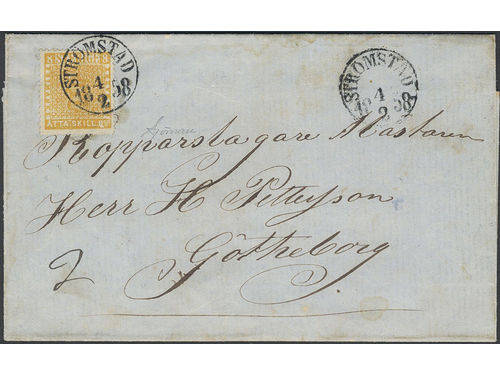 STRÖMSTAD
4
18 58
2
ÅTTA SKILL. BCO
STRÖMSTAD
4
18 58
2
Kopparslagare Mästaren
Herr H Pettersson
Götheborg
2